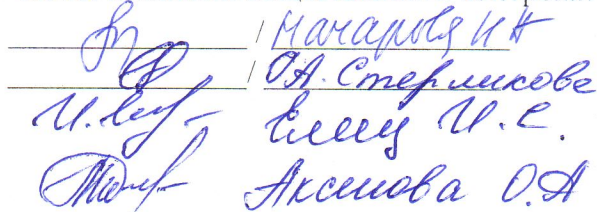 / Начарова Н Н
/ О.А. Стерликова
Елец И. С.
Аксенова О.А